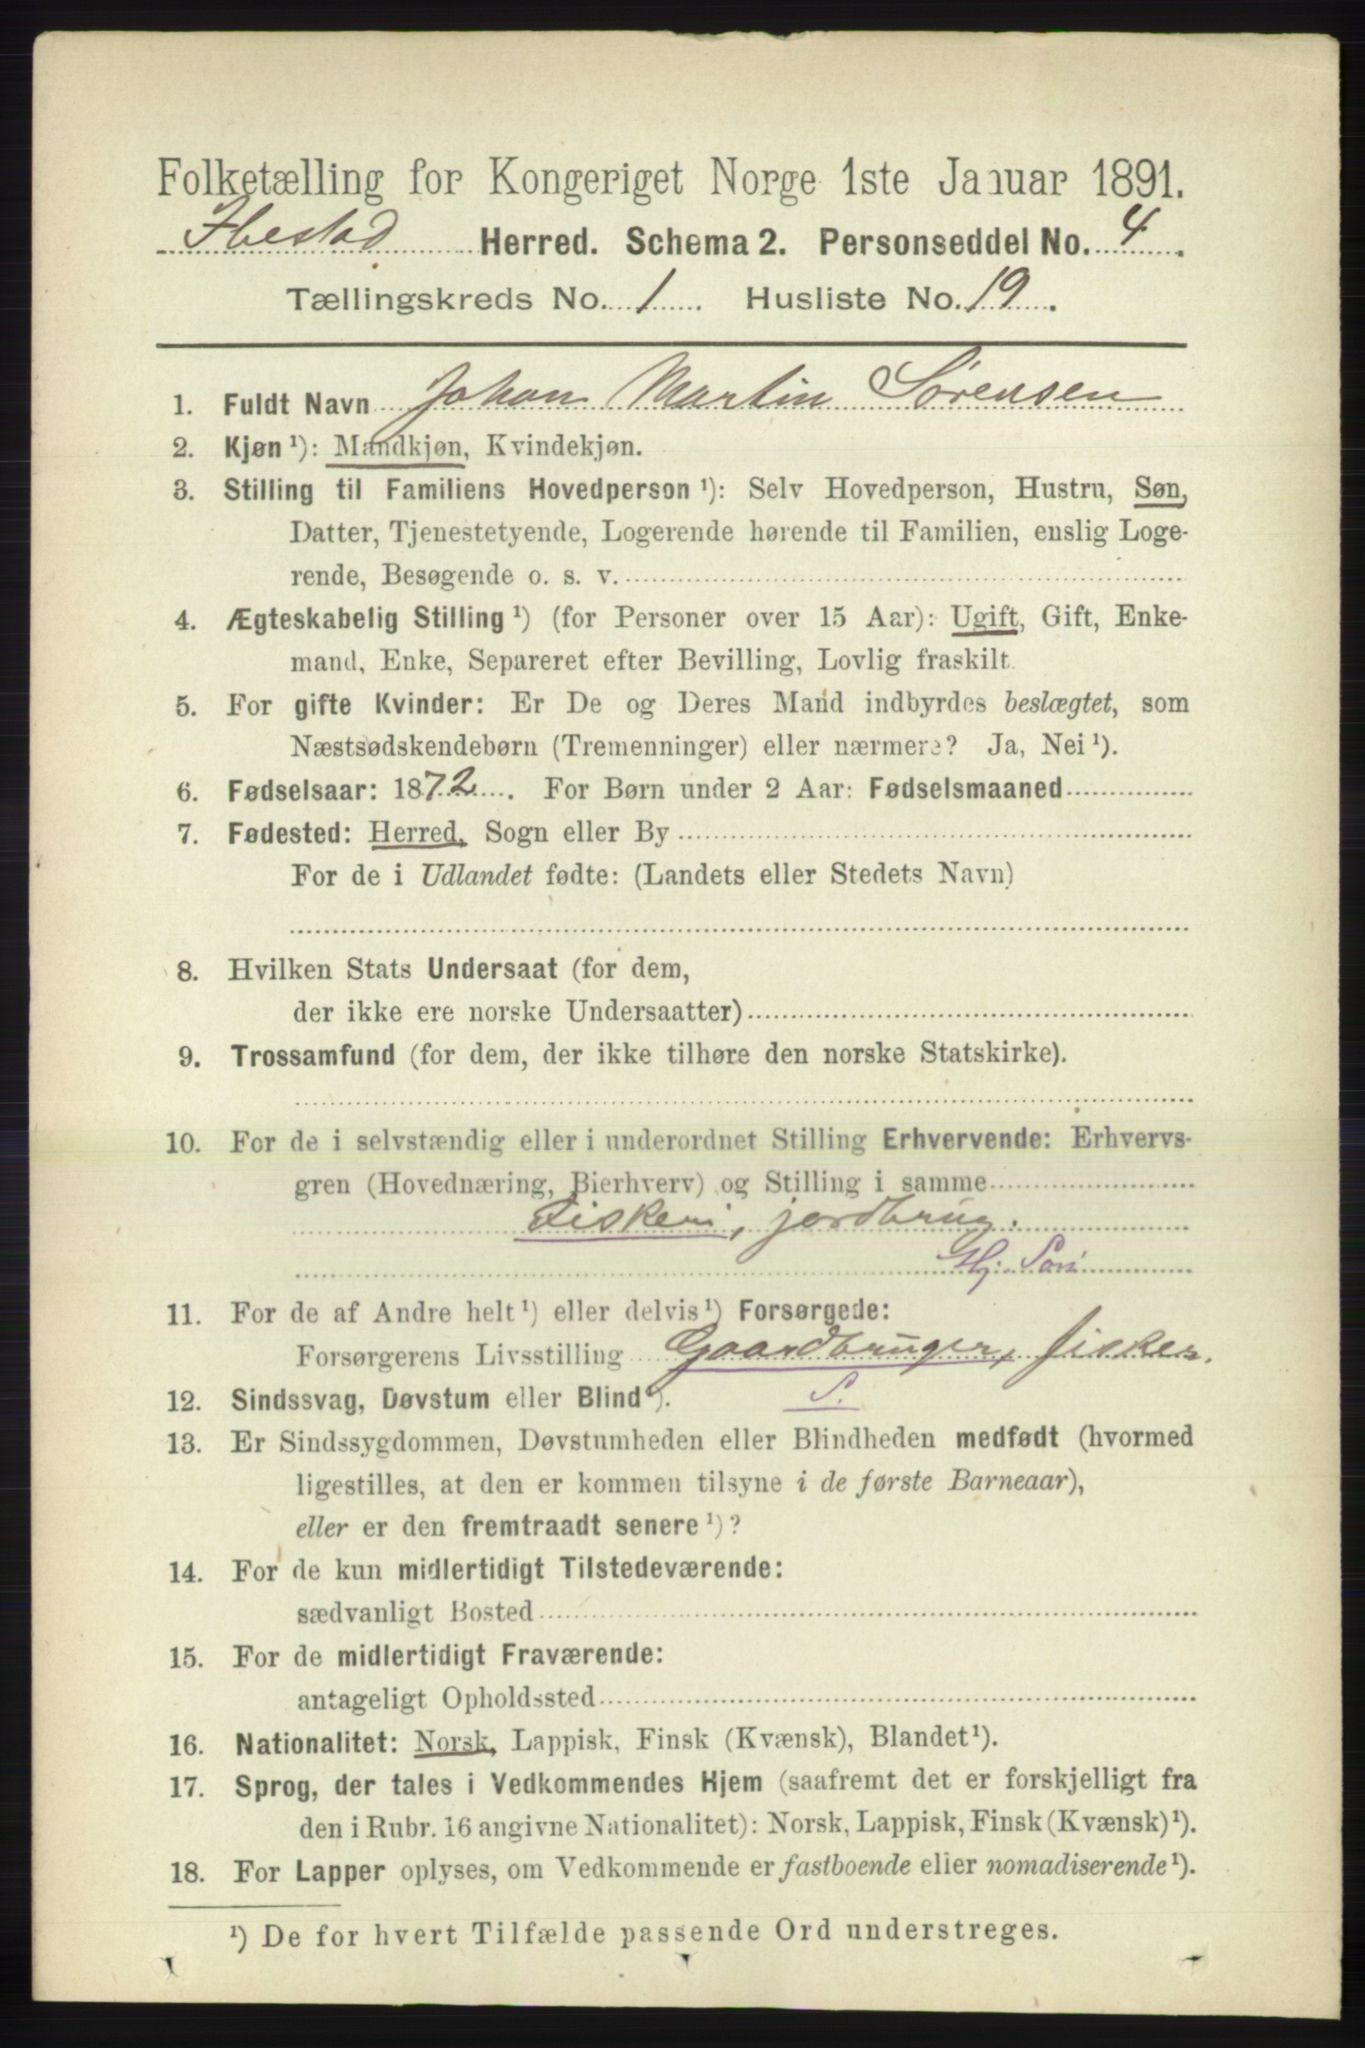 Folketælling for Kongeriget Norge 1ste Januar 1891.
Ibestad Herred. Schema 2. Personseddel No. 4.
Tællingskreds No. 1 Husliste No. 19.
1. Fuldt Navn Johan Martin Sørensen
2. Kjøn ¹): Mandkjøn, Kvindekjøn.
3. Stilling til Familiens Hovedperson ¹): Selv Hovedperson, Hustru, Søn,
Datter, Tjenestetyende, Logerende hørende til Familien, enslig Loge-
rende, Besøgende o. s. v.
4. Ægteskabelig Stilling ¹) (for Personer over 15 Aar): Ugift, Gift, Enke-
mand, Enke, Separeret efter Bevilling, Lovlig fraskilt.
5. For gifte Kvinder: Er De og Deres Mand indbyrdes beslægtet, som
Næstsødskendebørn (Tremenninger) eller nærmere? Ja, Nei ¹).
6. Fødselsaar: 1872. For Børn under 2 Aar: Fødselsmaaned
7. Fødested: Herred, Sogn eller By
For de i Udlandet fødte: (Landets eller Stedets Navn)
8. Hvilken Stats Undersaat (for dem,
der ikke ere norske Undersaatter)
9. Trossamfund (for dem, der ikke tilhøre den norske Statskirke).
10. For de i selvstændig eller i underordnet Stilling Erhvervende: Erhvervs-
gren (Hovednæring, Bierhverv) og Stilling i samme
Fiskeri, jordbrug.
Hj. Søn
11. For de af Andre helt ¹) eller delvis ¹) Forsørgede:
Forsørgerens Livsstilling Gaardbruger, fisker.
12. Sindssvag, Døvstum eller Blind ¹). S.
13. Er Sindssygdommen, Døvstumheden eller Blindheden medfødt (hvormed
ligestilles, at den er kommen tilsyne i de første Barneaar),
eller er den fremtraadt senere ¹)?
14. For de kun midlertidigt Tilstedeværende:
sædvanligt Bosted
15. For de midlertidigt Fraværende:
antageligt Opholdssted
16. Nationalitet: Norsk, Lappisk, Finsk (Kvænsk), Blandet ¹).
17. Sprog, der tales i Vedkommendes Hjem (saafremt det er forskjelligt fra
den i Rubr. 16 angivne Nationalitet): Norsk, Lappisk, Finsk (Kvænsk) ¹).
18. For Lapper oplyses, om Vedkommende er fastboende eller nomadiserende ¹).
¹) De for hvert Tilfælde passende Ord understreges.